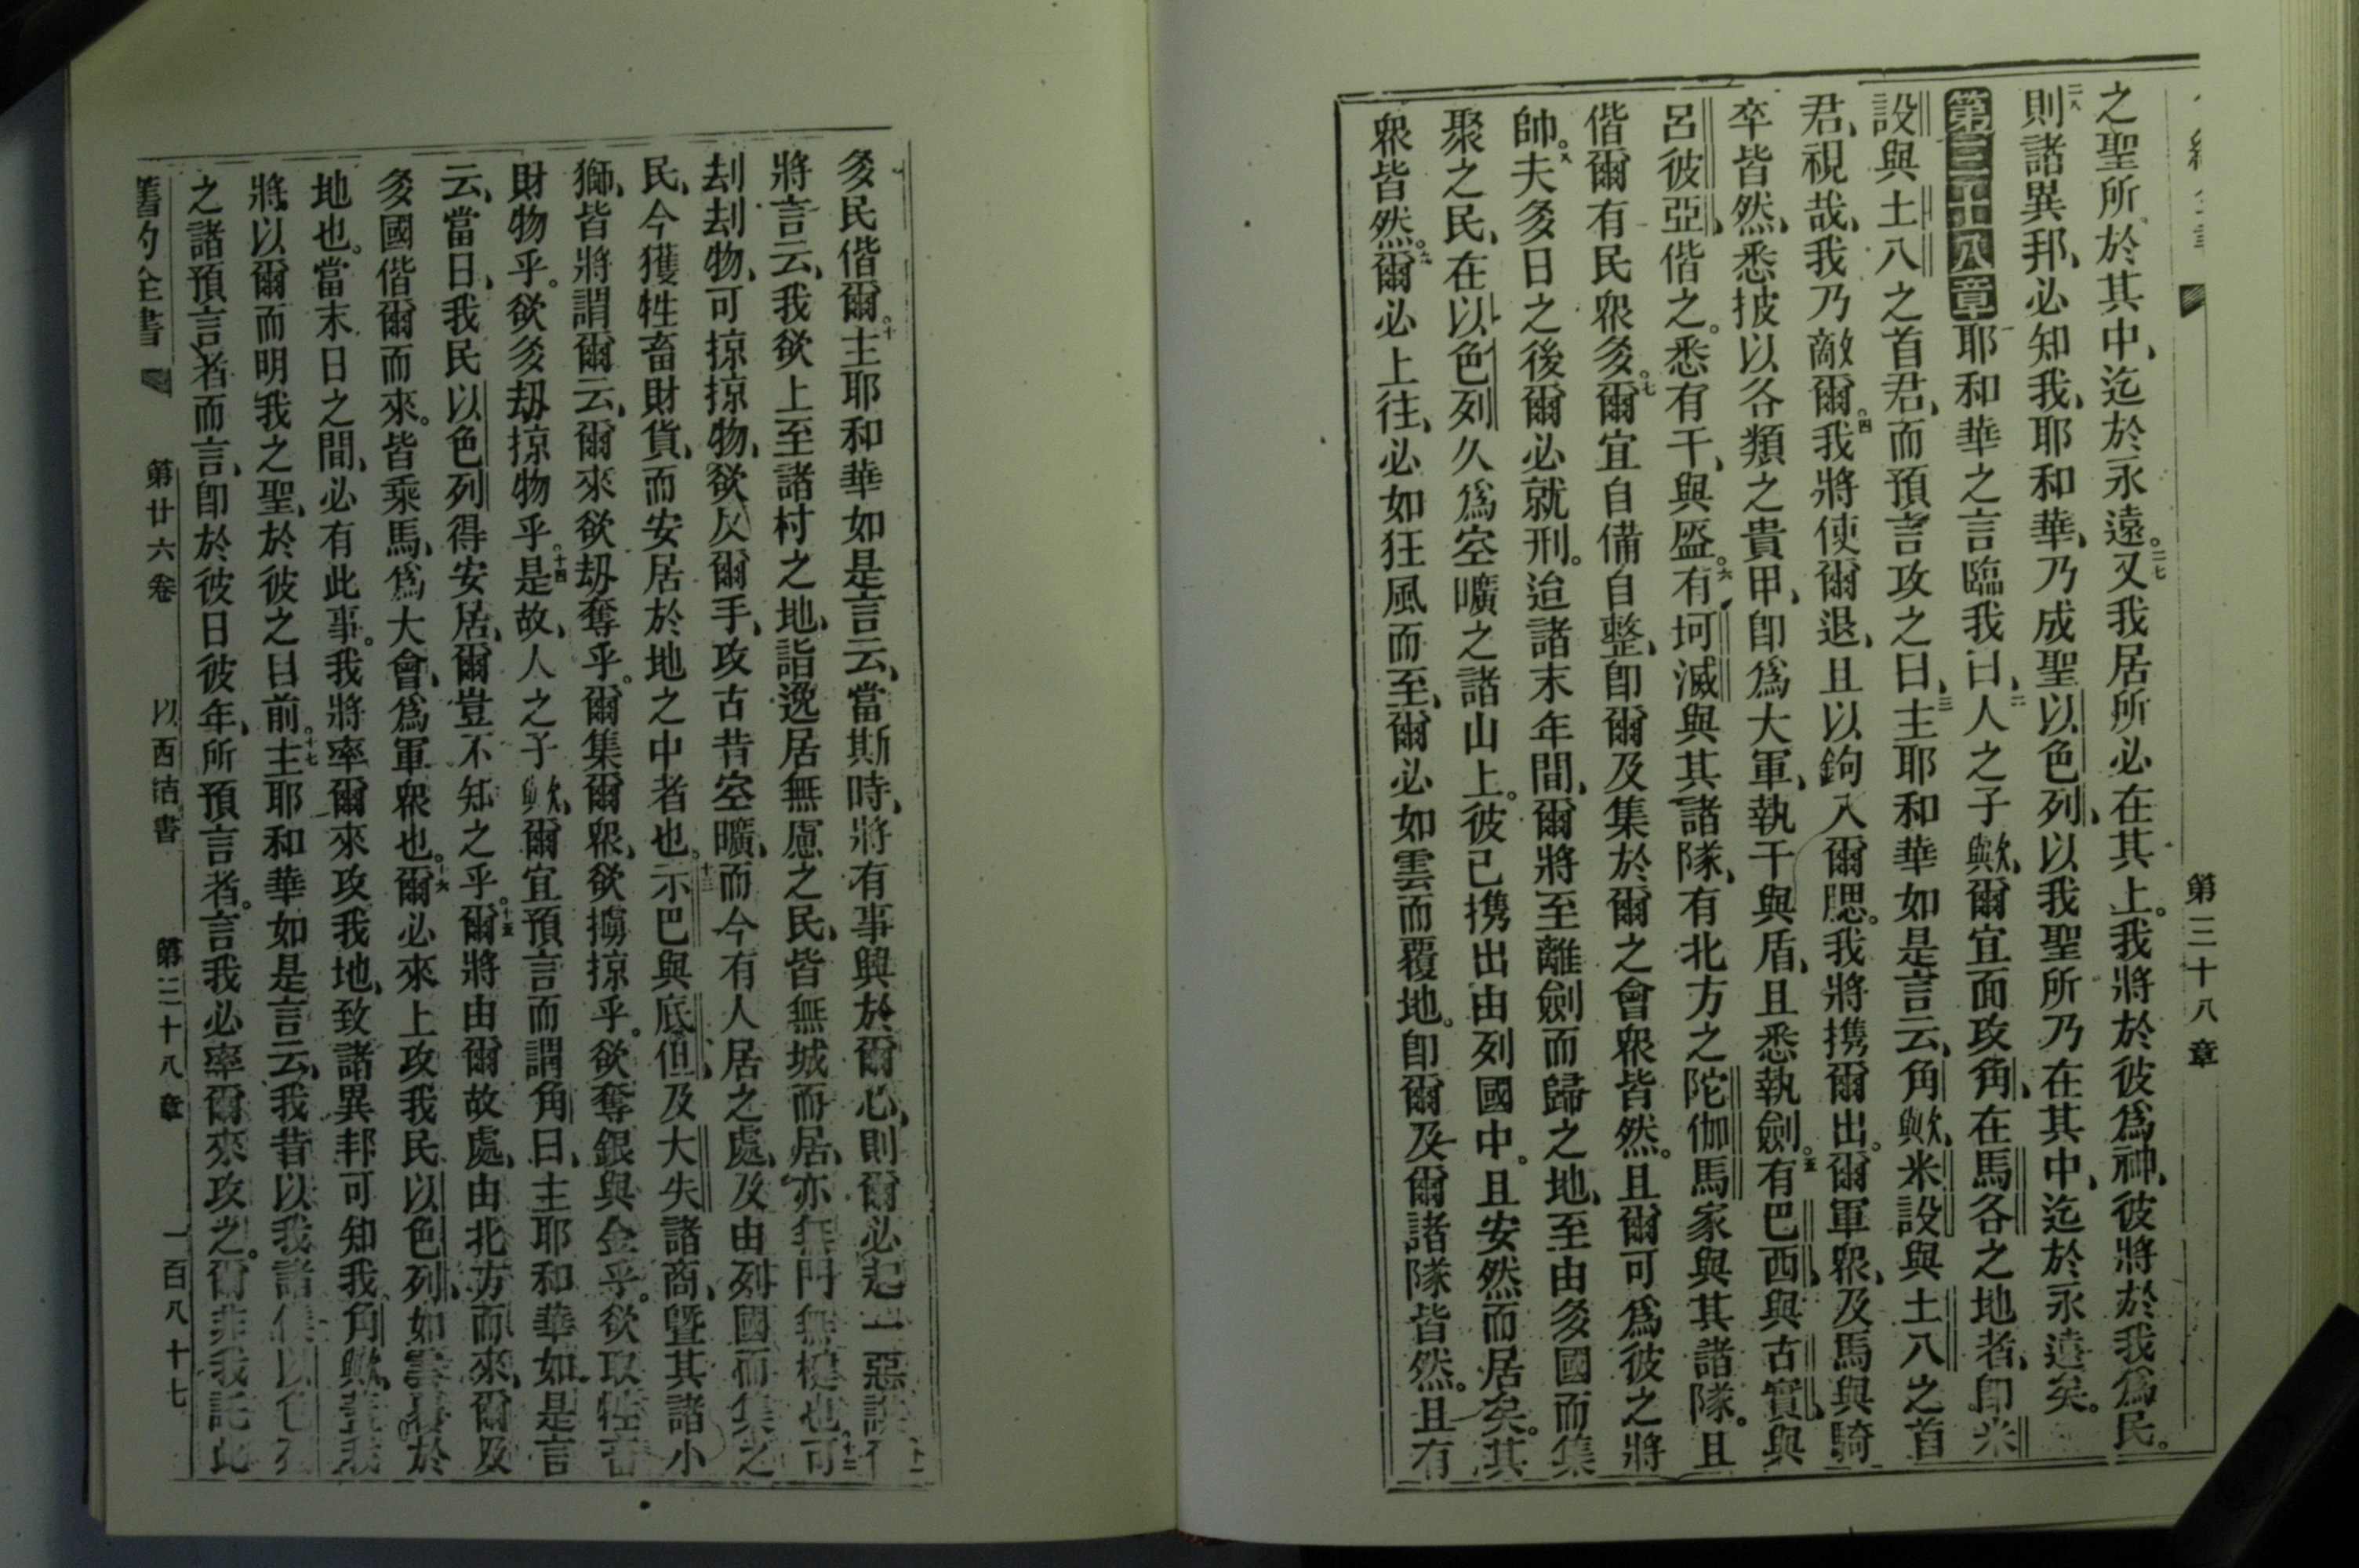 第三十八章
之聖所於其中、迄於永遠。二七又我居所必在其上。我將於彼爲神、彼將於我爲民。
二八則諸異邦、必知我、耶和華、乃成聖以色列、以我聖所乃在其中、迄於永遠矣。
第三十八章耶和華之言臨我曰、二人之子歟、爾宜面攻角、在馬各之地者、卽米
設與土八之首君、而預言攻之曰、三主耶和華如是言云、角歟、米設與土八之首
君、視哉、我乃敵爾。四我將使爾退、且以鉤入爾腮。我將攜爾出。爾軍眾、及馬與騎
卒皆然、悉披以各類之貴甲、卽爲大軍、執干與盾、且悉執劍。五有巴西、與古實、與
呂彼亞、偕之。悉有干、與盔。六有坷滅與其諸隊、有北方之陀伽馬家與其諸隊。且
偕爾有民眾多。七爾宜自備自整、卽爾及集於爾之會眾皆然。且爾可爲彼之將
帥。八夫多日之後爾必就刑。迨諸末年間、爾將至離劍而歸之地、至由多國而集
聚之民、在以色列久爲空曠之諸山上。彼已攜出由列國中。且安然而居矣。其
眾皆然。九爾必上往、必如狂風而至、爾必如雲而覆地。卽爾及爾諸隊皆然。且有
多民偕爾。十主耶和華如是言云、當斯時、將有事興於爾心、則爾必起一惡謀
將言云、我欲上至諸村之地、詣逸居無慮之民、皆無城而居、亦無門無楗也。可
刦刦物、可掠掠物、欲反爾手、攻古昔空曠、而今有人居之處、及由列國而集之
民、今獲牲畜財貨、而安居於地之中者也。十三示巴與底但、及大失諸商、曁其諸小
獅、皆將謂爾云、爾來欲刼奪乎。爾集爾眾、欲擄掠乎。欲奪銀與金乎。欲取牲畜
財物乎。欲多刼掠物乎。十四是故、人之子歟、爾宜預言而謂角曰、主耶和華如是言
云、當日、我民以色列得安居、爾豈不知之乎。十五爾將由爾故處、由北方而來、爾及
多國偕爾而來。皆乘馬、爲大會、爲軍眾也。十六爾必來上攻我民以色列、如雲於
地也。當末日之間、必有此事。我將率爾來攻我地、致諸異邦可知我、角歟、我
將以爾而明我之聖、於彼之目前。十七主耶和華如是言云、我昔以我諸以色
之諸預言者而言、卽於彼日彼年、所預言者。言我必率爾來攻之。爾非我託此
舊約全書
第廿六卷
以西結書
第三十八章
一百八十七